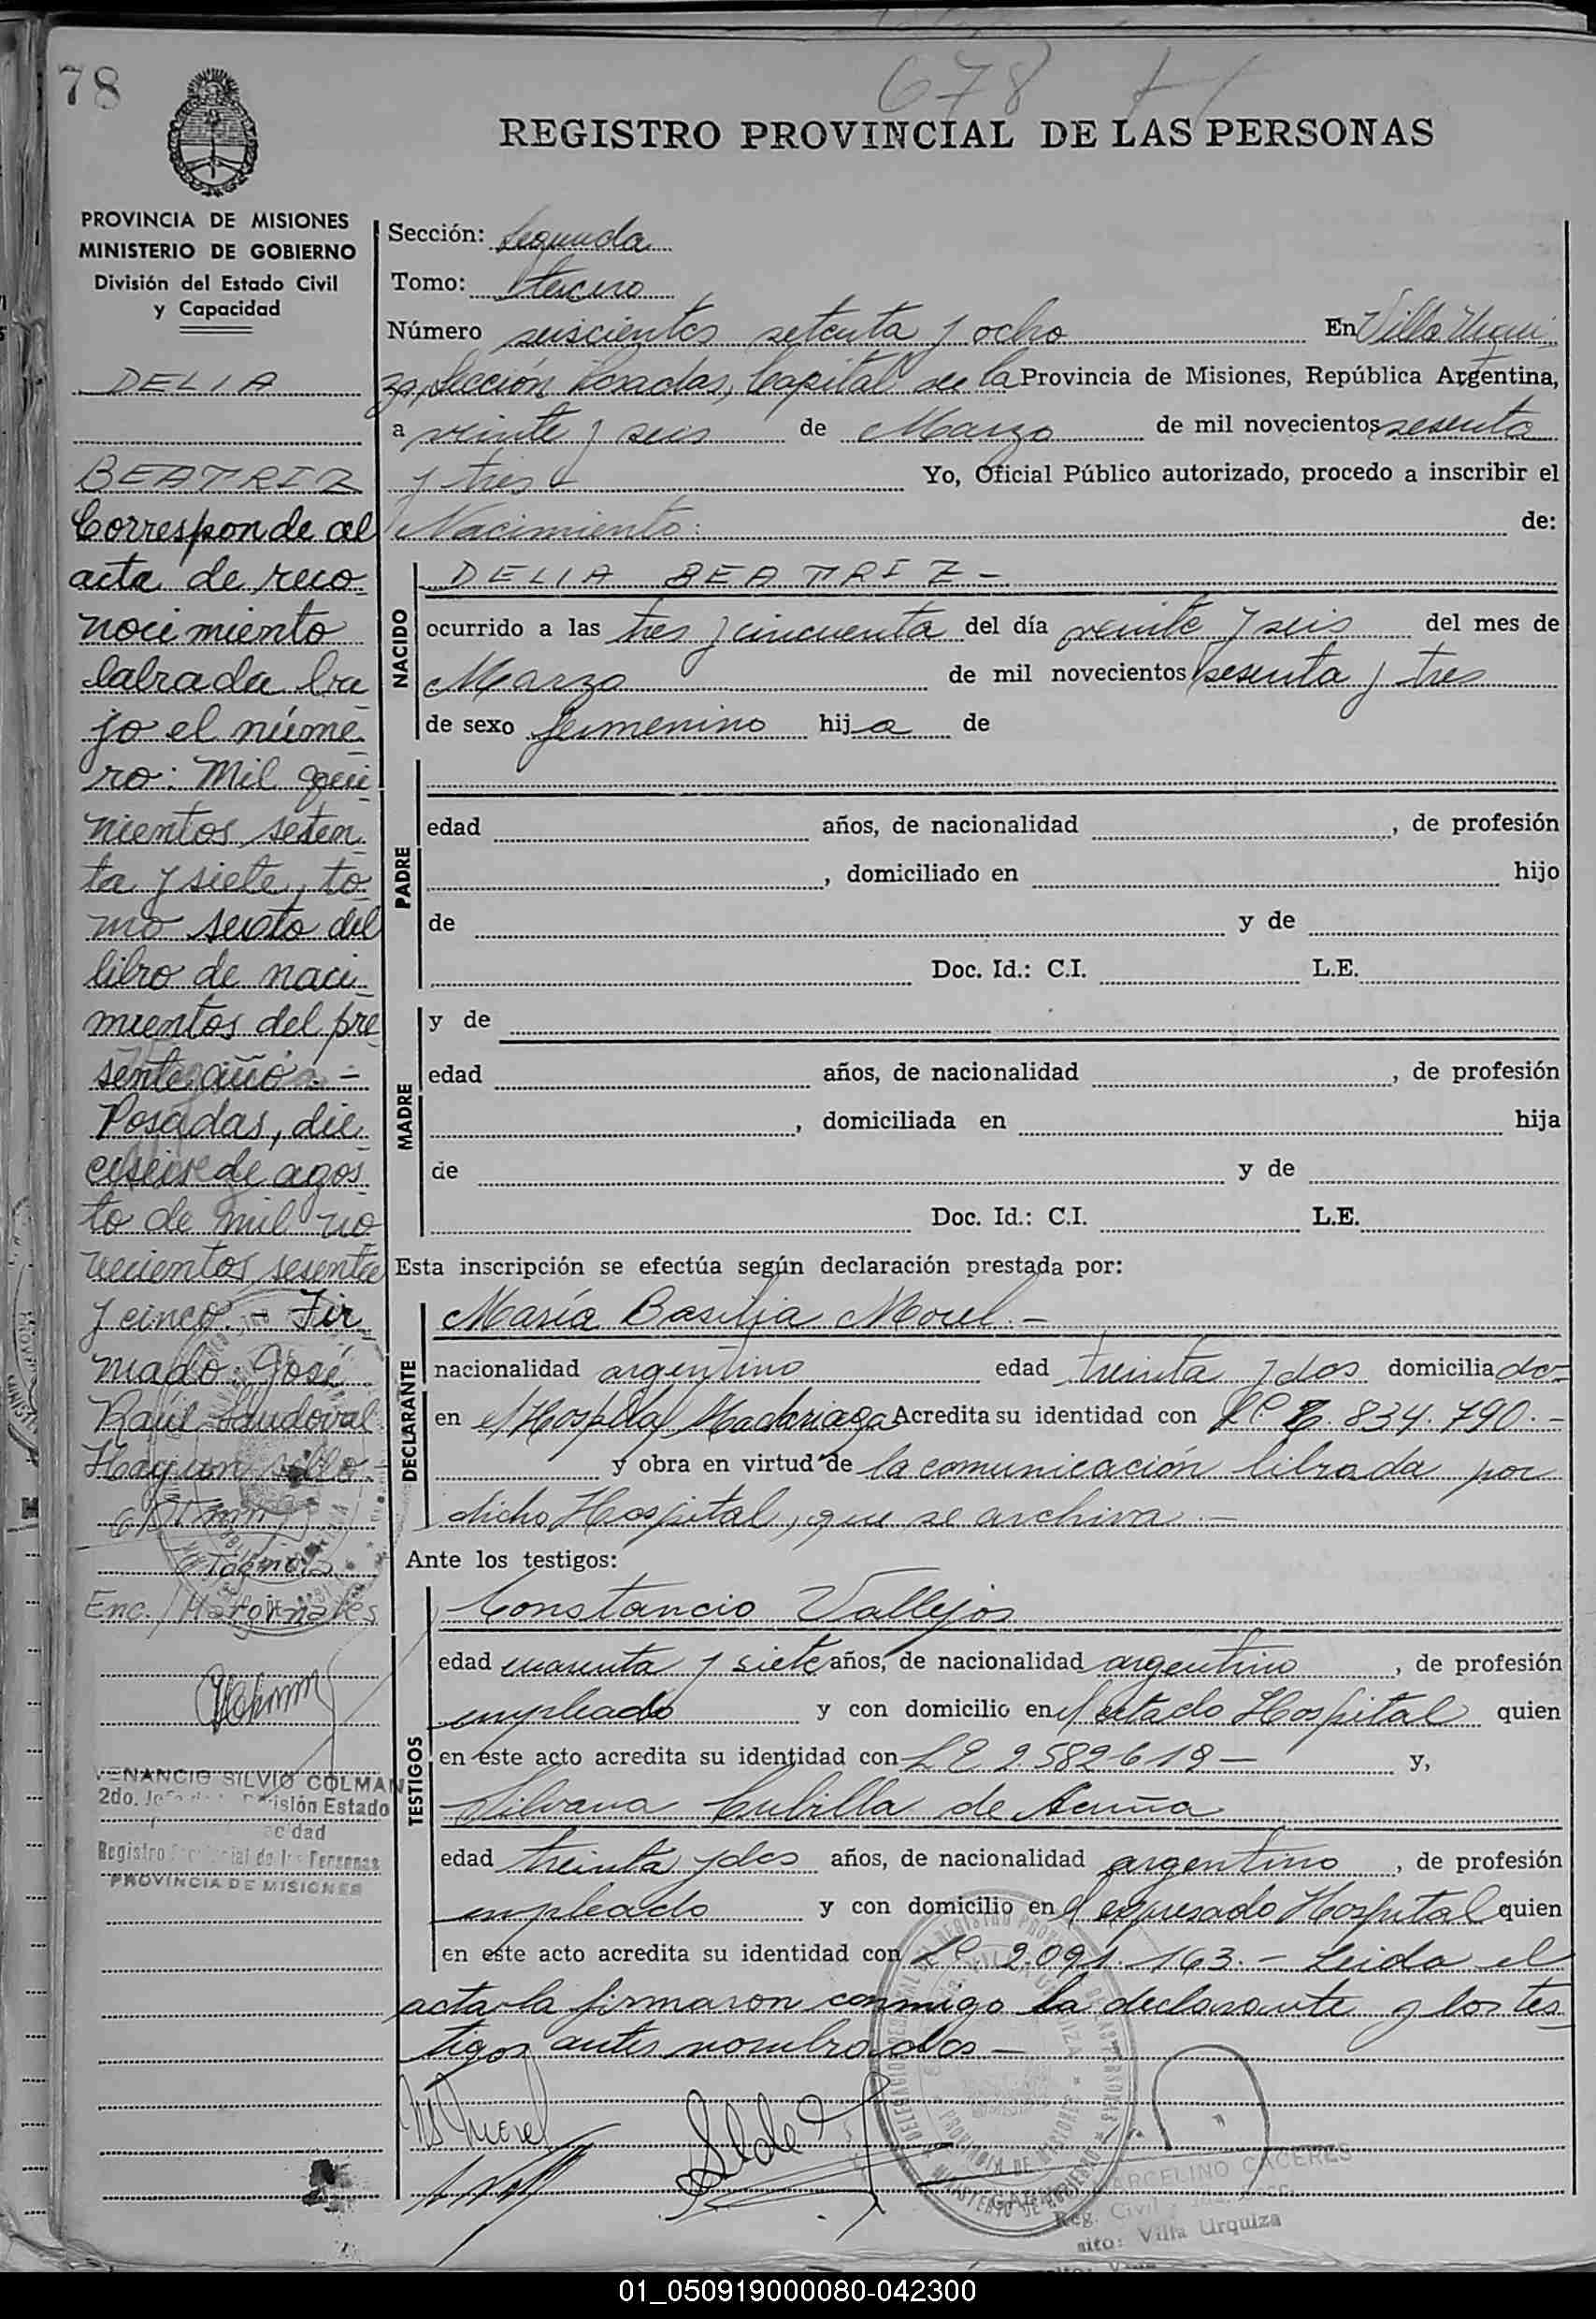 78
678
REGISTRO PROVINCIAL DE LAS PERSONAS
PROVINCIA DE MISIONES
MINISTERIO DE GOBIERNO
División del Estado Civil
y Capacidad
DELIA
BEATRIZ
Corresponde al
acta de reco
nocimiento
labrada ba
jo el núme
ro: Mil qui
nientos seten
ta y siete, to
mo sexto del
libro de naci
mientos del pre
sente año. -
Posadas, die
ciseis de agos
to de mil no
vecientos sesenta
y cinco. - Fir
mado: José
Raúl Sandoval
Hay un sello -
Enc. Marginales
VENANCIO SILVIO COLMAN
2do. Jefe de la División Estado
Registro Provincial de las Personas
PROVINCIA DE MISIONES
Sección: Segunda
Tomo: tercero
Número seiscientos setenta y ocho En Villa Urqui
za, Sección Posadas, Capital de la Provincia de Misiones, República Argentina,
a veinte y seis de Marzo de mil novecientos sesenta
y tres Yo, Oficial Público autorizado, procedo a inscribir el
Nacimiento: de:
NACIDO
DELIA BEATRIZ -
ocurrido a las tres y cincuenta del día veinte y seis del mes de
Marzo de mil novecientos sesenta y tres
de sexo femenino hija de
PADRE
edad años, de nacionalidad , de profesión
, domiciliado en hijo
de y de
Doc. Id.: C.I. L.E.
MADRE
y de
edad años, de nacionalidad , de profesión
, domiciliada en hija
de y de
Doc. Id.: C.I. L.E.
Esta inscripción se efectúa según declaración prestada por:
DECLARANTE
María Basilia Morel. -
nacionalidad argentino edad treinta y dos domiciliado
en el Hospital Madariaga Acredita su identidad con 834.790. -
y obra en virtud de la comunicación librada por
dicho Hospital, que se archiva. -
Ante los testigos:
TESTIGOS
Constancio Vallejos
edad cuarenta y siete años, de nacionalidad argentino , de profesión
empleado y con domicilio en el citado Hospital quien
en este acto acredita su identidad con L E 2.582618 - y,
Silvana Cubilla de Acuña
edad treinta y dos años, de nacionalidad argentino , de profesión
empleado y con domicilio en el expresado Hospital quien
en este acto acredita su identidad con 2.091.163. - Leida el
acta la firmaron conmigo la declarante y los tes
tigos antes nombrados -
MARCELINO CACERES
Reg. Civil
sito: Villa Urquiza
01_050919000080-042300